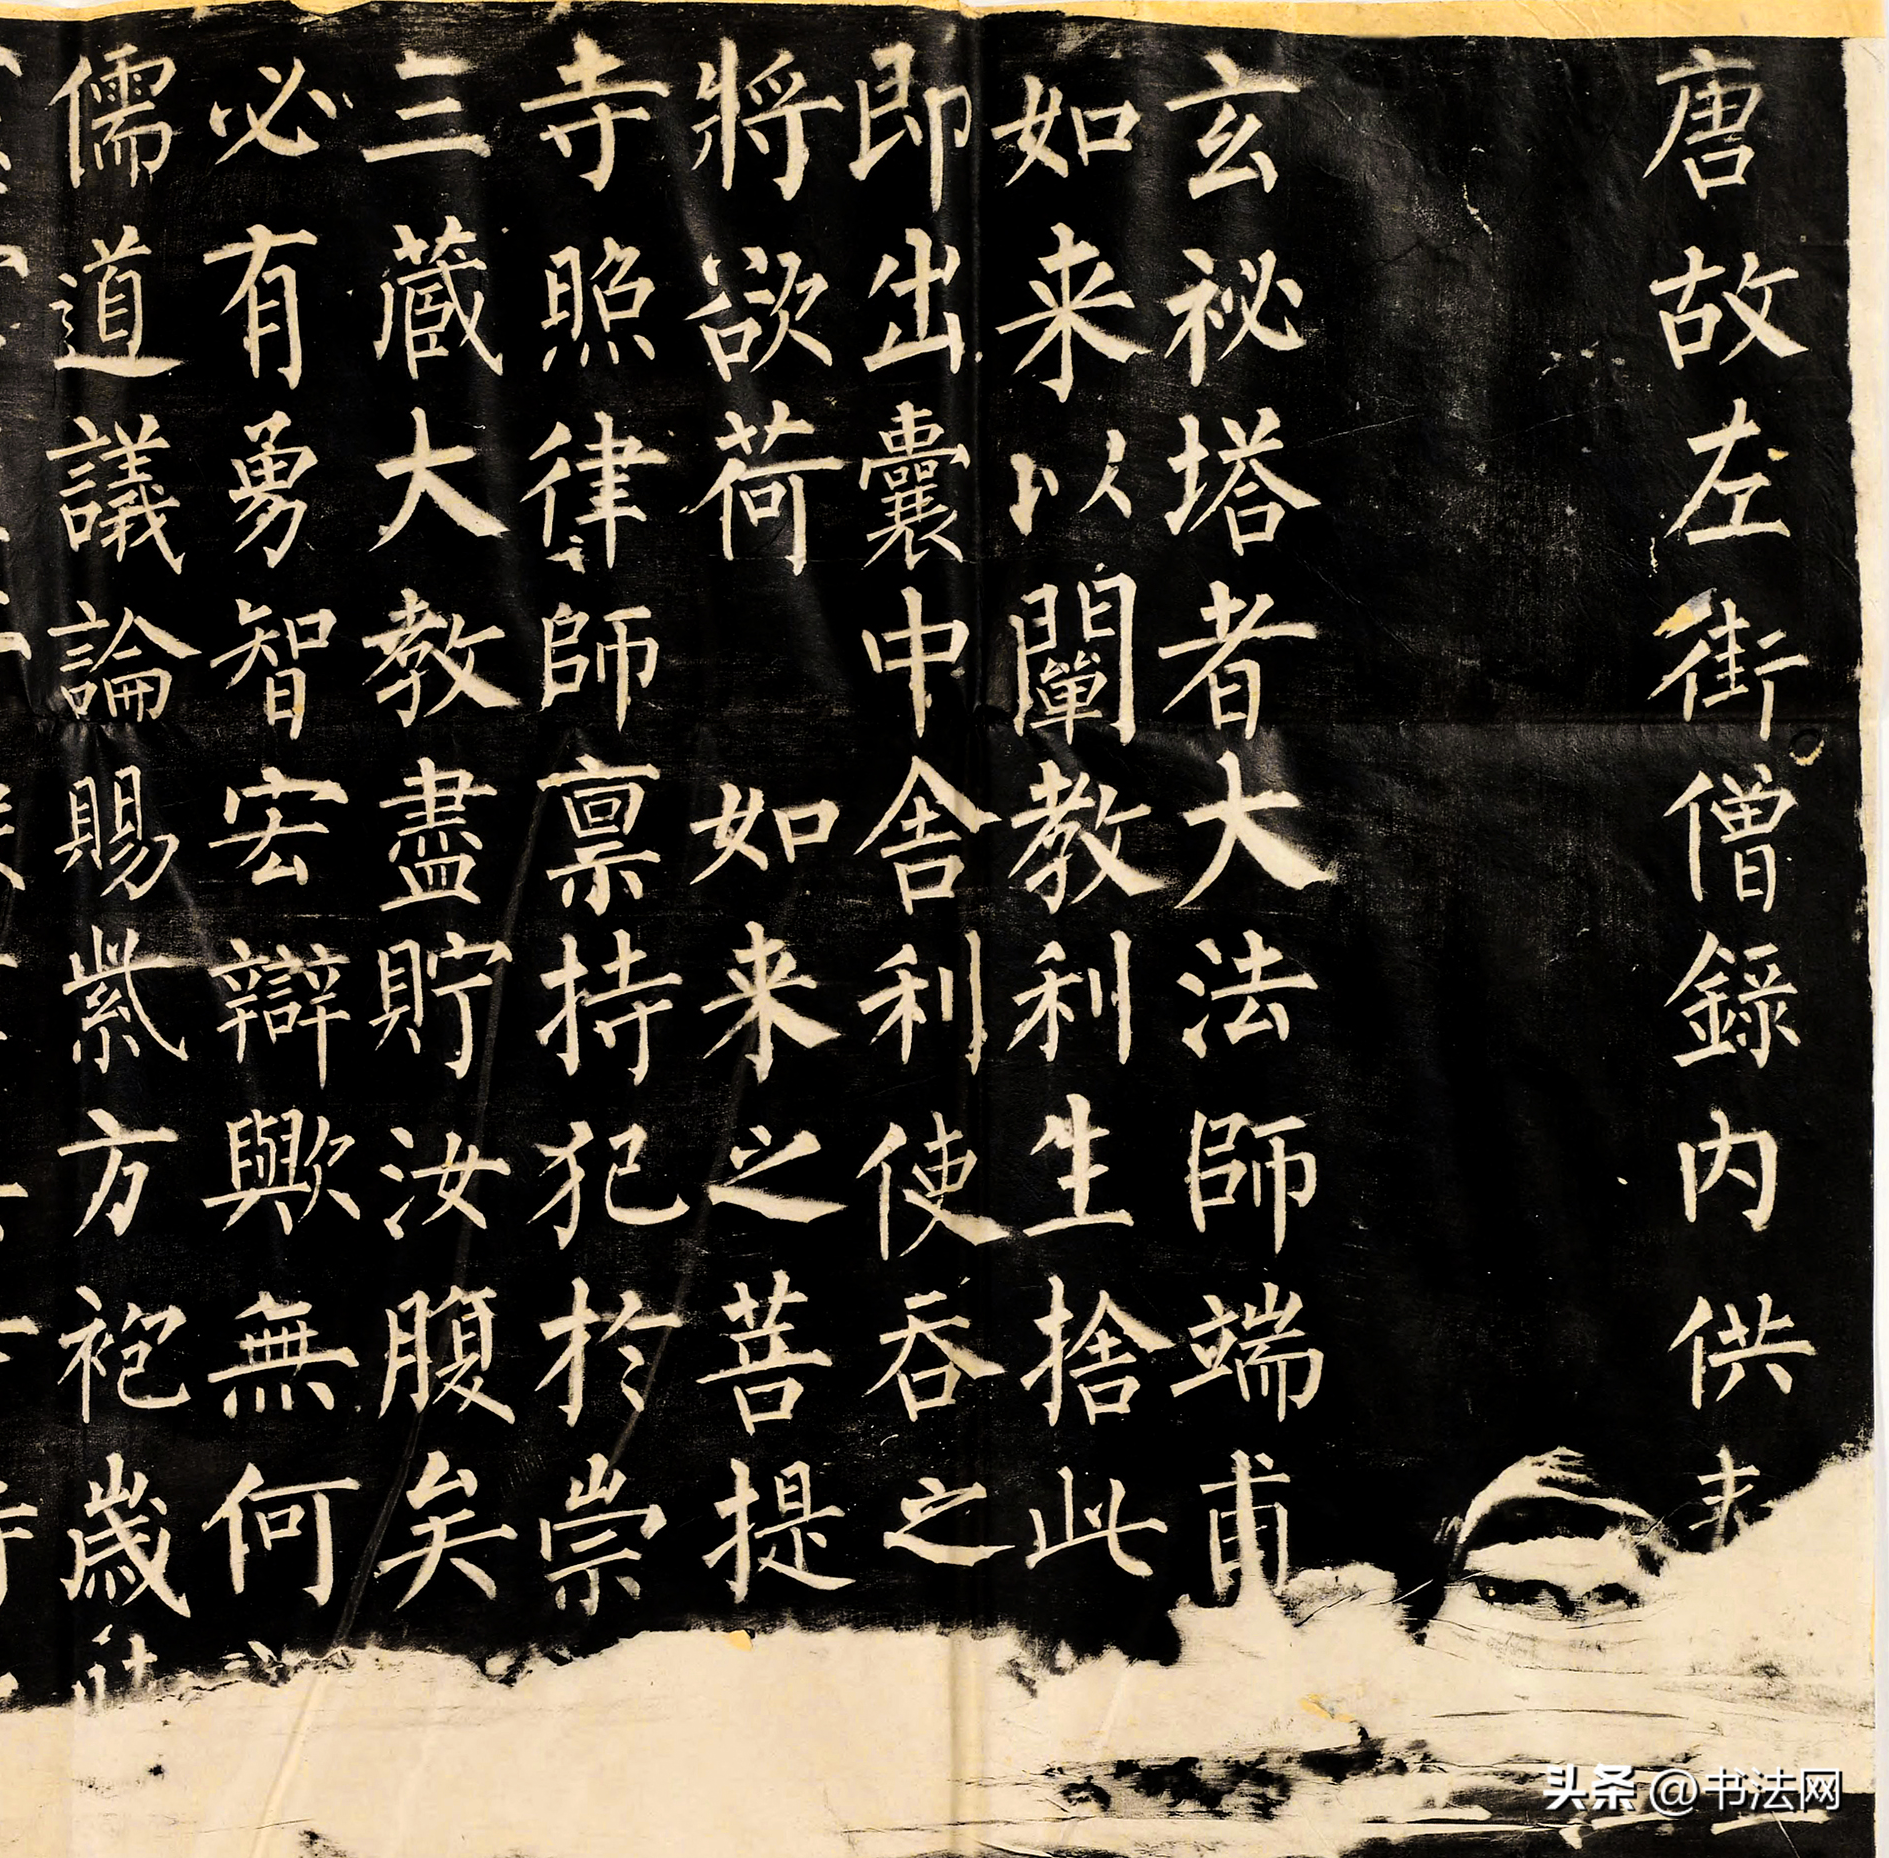 唐故左街僧錄內供
玄祕塔者大法師端甫
如来以闡教利生捨此
即出囊中舍利使吞之
將欲荷如来之菩提
寺照律師禀持犯於崇
三藏大教盡貯汝腹矣
必有勇智宏辯歟無何
儒道議論賜紫方袍歲
头条@书法网